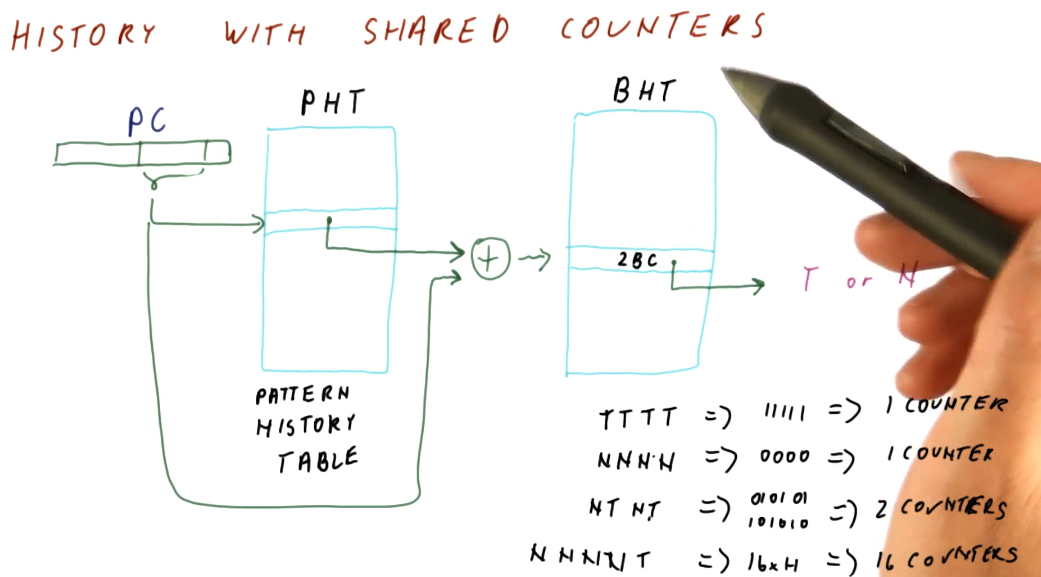 HISTORY WITH SHARED COUNTERS
PC
PHT
BHT
2BC
T or N
PATTERN
HISTORY
TABLE
TTTT => 11111 => 1 COUNTER
NNNN => 0000 => 1 COUNTER
NTNT => 010101 101010 => 2 COUNTERS
NNNNT => 16xH => 16 COUNTERS